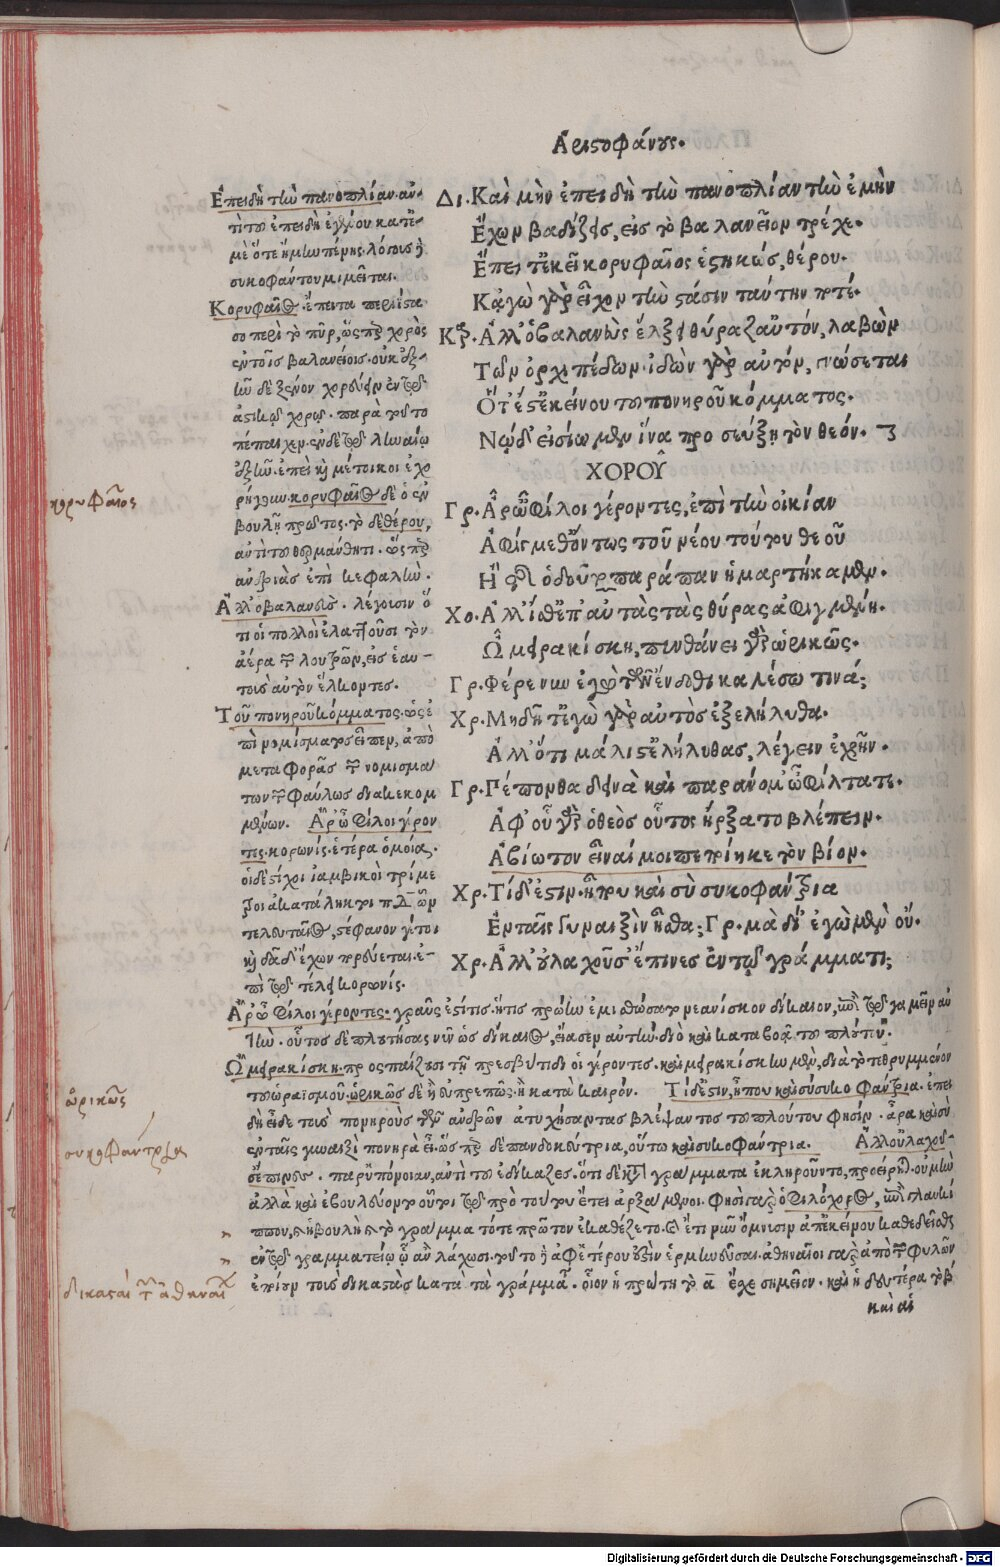 Ἀριστοφάνους.
Δι. Καὶ μὴν ἐπειδὴ τὴν πανοπλίαν τὴν ἐμὴν
Ἔχων βαδίζεις, εἰς τὸ βαλανεῖον τρέχε.
Ἔπειτ' ἐκεῖ κορυφαῖος ἑστηκώς, θέρου.
Κἀγὼ γὰρ εἶχον τὴν στάσιν ταύτην ποτέ.
Κα. Ἀλλ' ὁ βαλανεὺς ἕλξει θύραζ' αὐτόν, λαβὼν
Τῶν ὀρχιπέδων. ἰδὼν γὰρ αὐτόν, γνώσεται
Ὅτ' ἔστ' ἐκείνου τοῦ πονηροῦ κόμματος.
Νὼ δ' εἰσίωμεν ἵνα προσεύξῃ τὸν θεόν.
ΧΟΡΟΥ̂
Γρ. Ἆρ' ὦ φίλοι γέροντες, ἐπὶ τὴν οἰκίαν
Ἀφίγμεθ' ὄντως τοῦ νέου τούτου θεοῦ
Ἢ τῆς ὁδοῦ τὸ παράπαν ἡμαρτήκαμεν.
Χο. Ἀλλ' ἴσθ' ἐπ' αὐτὰς τὰς θύρας ἀφιγμένη.
Ὦ μειρακίσκη, πυνθάνει γὰρ ὡρικῶς.
Γρ. Φέρε νυν ἐγὼ τῶν ἔνδοθεν καλέσω τινά;
Χρ. Μὴ δῆτ' ἐγὼ γὰρ αὐτὸς ἐξελήλυθα.
Ἀλλ' ὅτι μάλιστ' ἐλήλυθας, λέγειν ἐχρῆν.
Γρ. Πέπονθα δεινὰ καὶ παράνομ' ὦ φίλτατε.
Ἀφ' οὗ γὰρ ὁ θεὸς οὗτος ἤρξατο βλέπειν.
Ἀβίωτον εἶναί μοι πεποίηκε τὸν βίον.
Χρ. Τί δ' ἔστιν. ἦ που καὶ σὺ συκοφάντρια
Ἐν ταῖς γυναιξὶν ἦσθα; Γρ. μὰ δί' ἐγὼ μὲν οὔ.
Χρ. Ἀλλ' οὐ λαχοῦσ' ἔπινες ἐν τῷ γράμματι;
Ἐπειδὴ τὴν πανοπλίαν. ἀν-
τὶ τοῦ ἐπειδὴ
συκοφάντου μιμεῖται.
Κορυφαῖος. ἔπειτα περιίστα-
σο περὶ τὸ πῦρ, ὥσπερ χορὸς
ἐν τοῖς βαλανείοις. οὐκ ἐξ-
ῆν δὲ ξένον χορεύειν ἐν τῷ
ἀστικῷ χορῷ. παρὰ τοῦτο
πέπαιχεν. ἐν δὲ τῷ ληναίῳ
ἐξῆν. ἐπεὶ καὶ μέτοικοι ἐχο
ρήγουν. κορυφαῖος δὲ ὁ ἐν
βουλῇ πρῶτος. τὸ δὲ θέρου,
ἀντὶ τοῦ θερμάνθητι. ὥσπερ
ἀνδριὰς ἐπὶ κεφαλήν.
Ἀλλ' ὁ βαλανεύς. λέγουσιν ὅ
τι οἱ πολλοὶ ἐλαττοῦσι τὸν
ἀέρα τῶν λουτρῶν, εἰς ἑαυ-
τοὺς αὐτὸν ἕλκοντες.
Τοῦ πονηροῦ κόμματος. ὡς ἐ
πὶ νομίσματος εἶπεν, ἀπὸ
μεταφορᾶς τῶν νομισμά
των τῶν φαύλως διακεκομ
μένων. Ἆρ' ὦ φίλοι γέρον
τες. κορωνὶς ἑτέρα ὁμοίας.
οἱ δὲ στίχοι ἰαμβικοὶ τρίμε
τροι ἀκατάληκτοι ὧν
τελευταῖος, στέφανον γέ τοι
καὶ δᾷδ' ἔχων πορεύεται. ἐ-
πὶ τῷ τέλει κορωνίς.
Ἆρ' ὦ φίλοι γέροντες. γραῦς ἐστί τις. ἥτις πρώην ἐμισθώσατο νεανίσκον δίκαιον, ἐπὶ τῷ γαμεῖν αὐ
τήν. οὗτος δὲ πλουτήσας νῦν ὡς δίκαιος, εἴασεν αὐτήν. διὸ καὶ καταβοᾷ τοῦ πλούτου.
Ὦ μειρακίσκη. προσπαίζουσι τῇ πρεσβύτιδι οἱ γέροντες. καὶ μειρακίσκην μὲν, διὰ τὸ τεθρυμμένον
τοῦ ὡραϊσμοῦ. ὡρικῶς δὲ ἢ εὐπρεπῶς. ἢ κατὰ καιρόν. Τί δ' ἔστιν, ἦ που καὶ σὺ συκοφάντρια. ἐπει
δὴ εἶδε τοὺς πονηροὺς τῶν ἀνδρῶν ἀτυχήσαντας βλέψαντος τοῦ πλούτου φησίν. ἆρα καὶ σὺ
ἐν ταῖς γυναιξὶ πονηρὰ εἶ. ὥσπερ δὲ πανδοκεύτρια, οὕτω καὶ συκοφάντρια. Ἀλλ' οὐ λαχοῦ-
σ' ἔπινες. παρ' ὑπόνοιαν, ἀντὶ τοῦ ἐδίκαζες. ὅτι δὲ κατὰ γράμματα ἐκληροῦντο, προείρηται. οὐ μὴν
ἀλλὰ καὶ ἐβουλεύοντο οὕτω τῷ πρὸ τούτου ἔτει ἀρξάμενοι. φησὶ γὰρ ὁ Φιλόχορος, ἐπὶ γλαυκί
ππου, καὶ ἡ βουλὴ κατὰ γράμμα τότε πρῶτον ἐκαθέζετο. καὶ ἔτι νῦν ὄμνυσιν ἀπ' ἐκείνου καθεδεῖσθαι
ἐν τῷ γραμματείῳ ᾧ ἂν λάχωσι.
ἐποίουν τοὺς δικαστὰς κατὰ τὰ γράμματα. οἷον ἡ πρώτη τὸ ᾱ εἶχε σημεῖον. καὶ ἡ δευτέρα τὸ β̄
καὶ αἱ
κορυφαῖος
ὡρικῶς
συκοφάντρια
δικασταὶ τῶν ἀθηναί
Digitalisierung gefördert durch die Deutsche Forschungsgemeinschaft - DFG